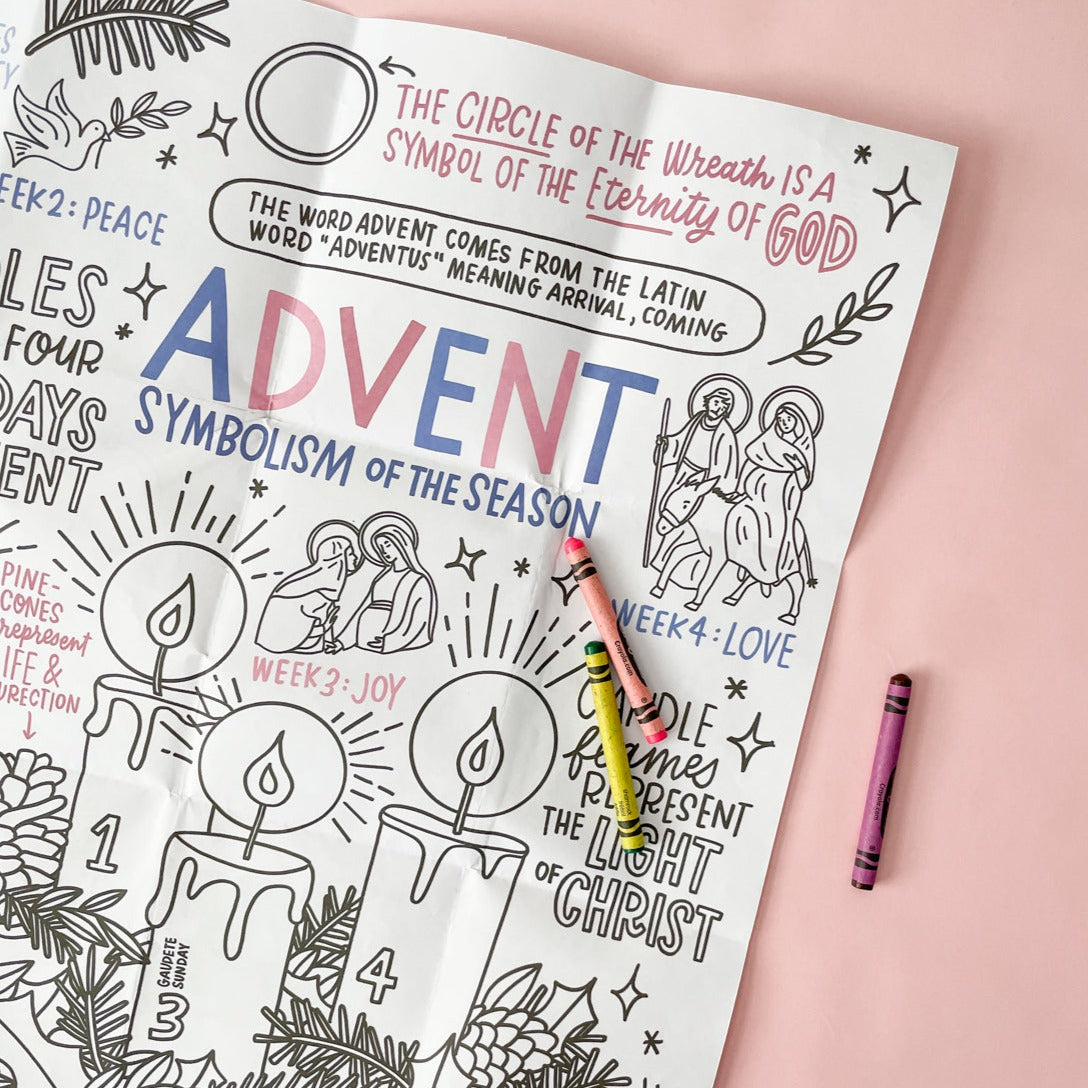 THE CIRCLE OF THE Wreath IS A
SYMBOL OF THE Eternity OF GOD
THE WORD ADVENT COMES FROM THE LATIN
WORD "ADVENTUS" MEANING ARRIVAL, COMING
ES
TY
EEK2: PEACE
LES
FOUR
DAYS
ENT
ADVENT
SYMBOLISM OF THE SEASON
WEEK3: JOY
WEEK4: LOVE
PINE-
CONES
represent
IFE &
URECTION
CANDLE
flames
REPRESENT
THE LIGHT
OF CHRIST
1
GAUDETE
SUNDAY
3
4
Crayola.com
Crayola.com